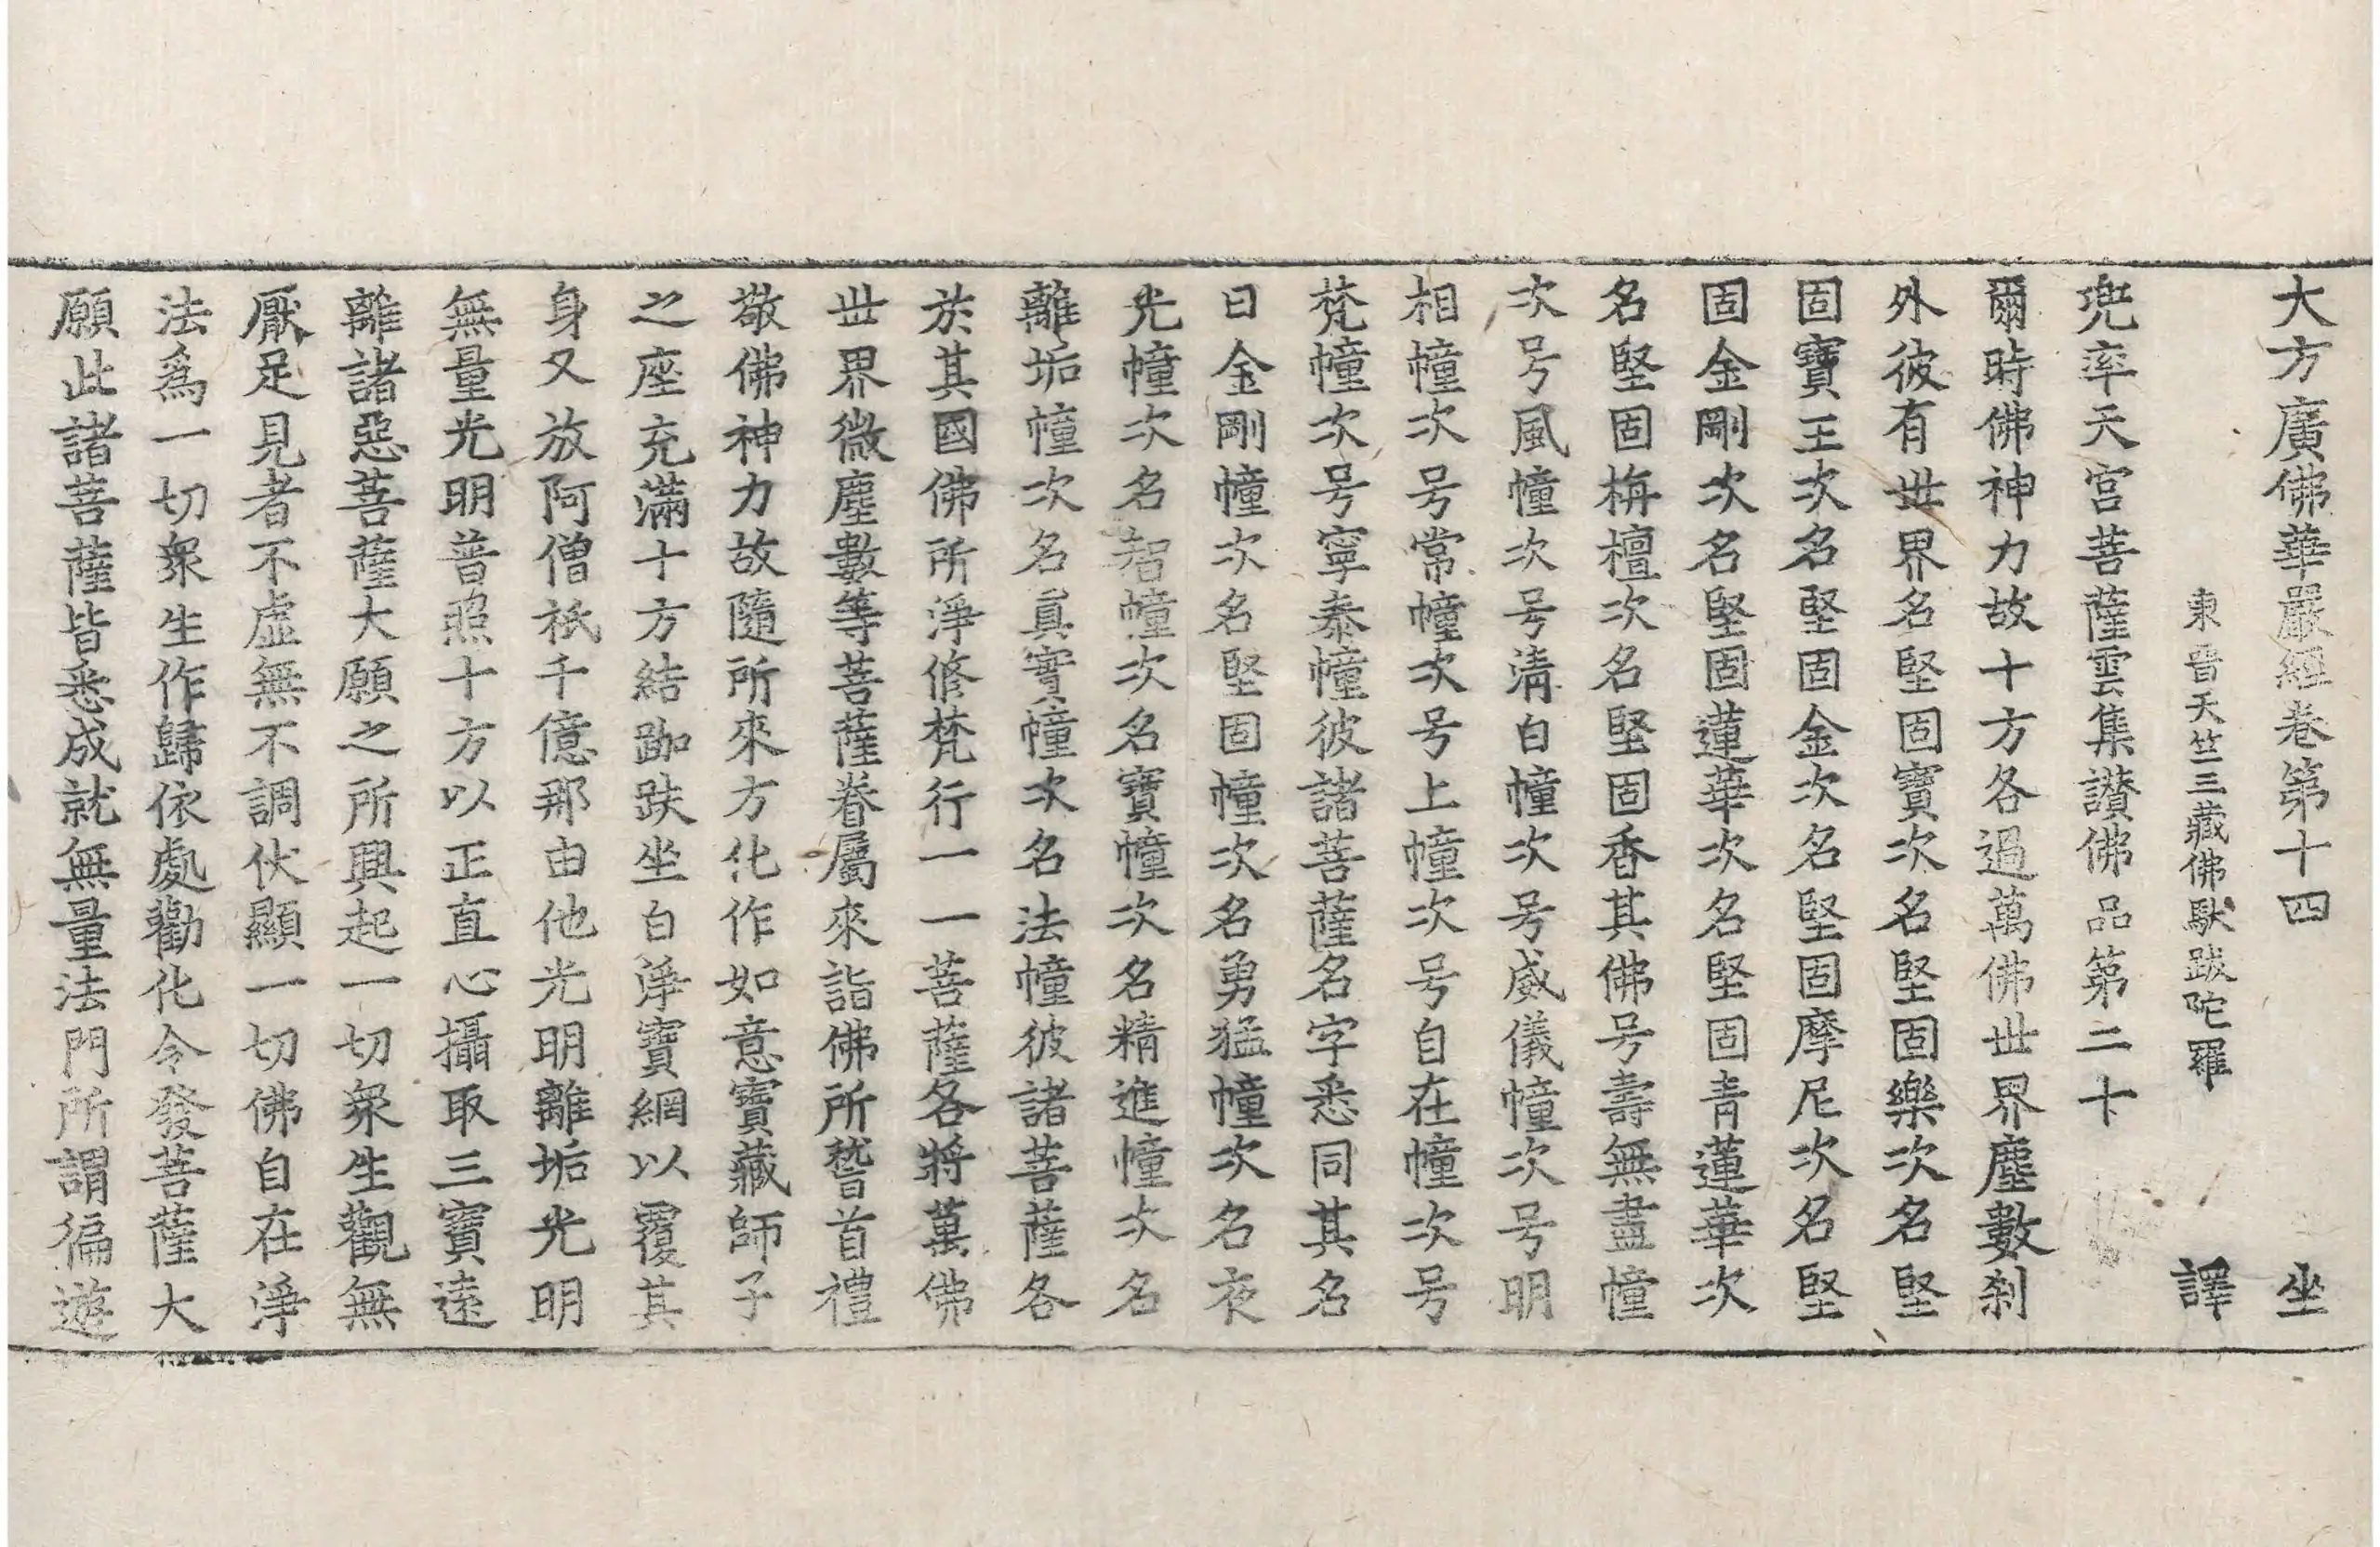 大方廣佛華嚴經卷第十四 坐
東晉天竺三藏佛馱跋陀羅 譯
兜率天宮菩薩雲集讃佛品第二十
爾時佛神力故十方各過萬佛世界塵數刹
外彼有世界名堅固寶次名堅固樂次名堅
固寶王次名堅固金次名堅固摩尼次名堅
固金剛次名堅固蓮華次名堅固青蓮華次
名堅固栴檀次名堅固香其佛号壽無盡幢
次号風幢次号清白幢次号威儀幢次号明
相幢次号常幢次号上幢次号自在幢次号
梵幢次号寧泰幢彼諸菩薩名字悉同其名
曰金剛幢次名堅固幢次名勇猛幢次名夜
光幢次名智幢次名寶幢次名精進幢次名
離垢幢次名真實幢次名法幢彼諸菩薩各
於其國佛所淨修梵行一一菩薩各將萬佛
世界微塵數等菩薩眷屬來詣佛所嵆首禮
敬佛神力故隨所來方化作如意寶藏師子
之座充滿十方結跏趺坐白淨寶網以覆其
身又放阿僧祇千億那由他光明離垢光明
無量光明普照十方以正直心攝取三寶遠
離諸惡菩薩大願之所興起一切衆生觀無
厭足見者不虛無不調伏顯一切佛自在淨
法爲一切衆生作歸依處勸化令發菩薩大
願此諸菩薩皆悉成就無量法門所謂徧遊